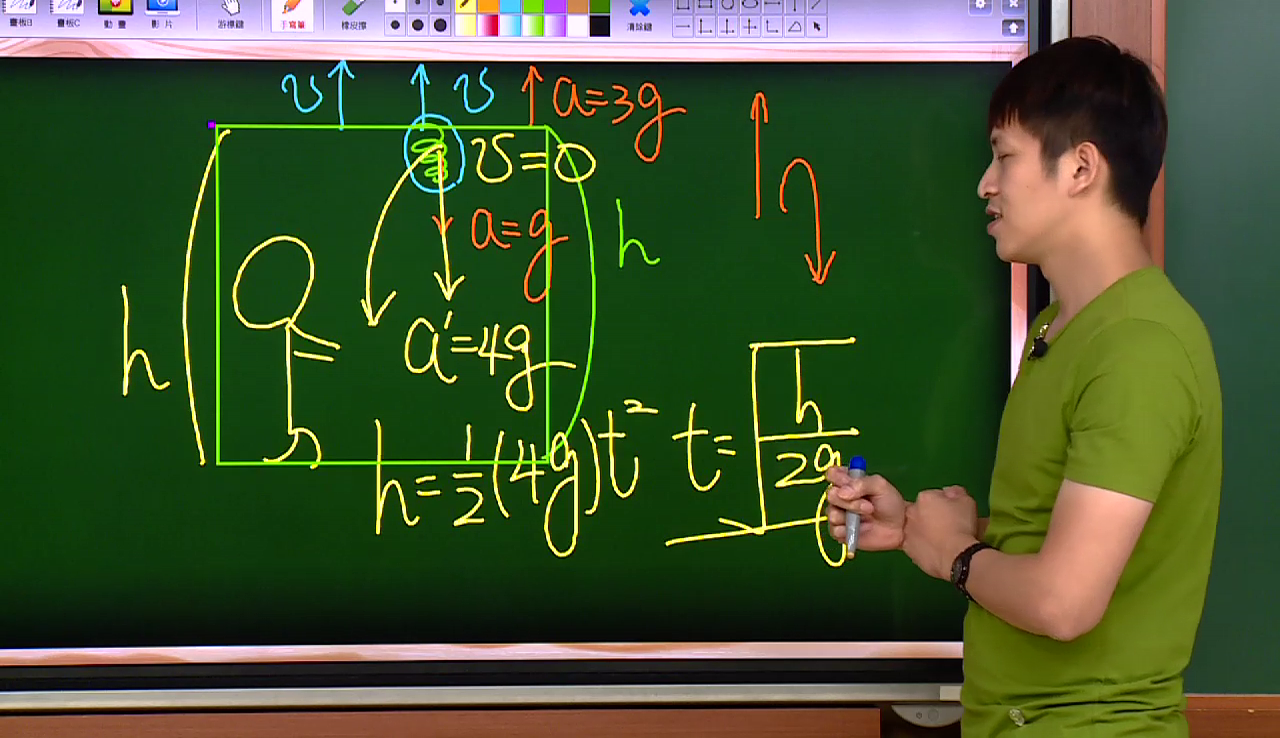 畫板B 畫板C 動畫 影片 游標鍵 手寫筆 橡皮擦 清除鍵
v v a=3g
v=0
a=g
h
h
a'=4g
h=½(4g)t² t=√(h/2g)